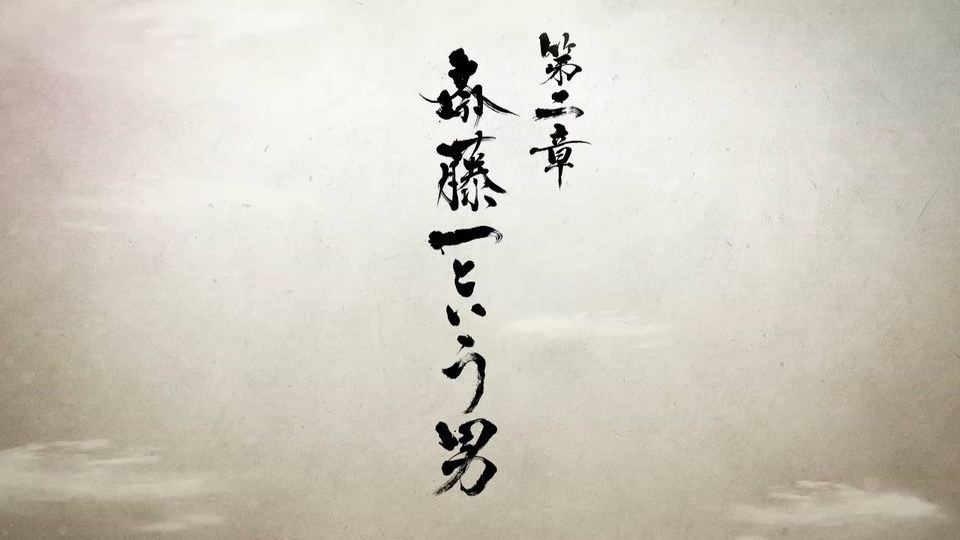 第二章
斎藤一という男